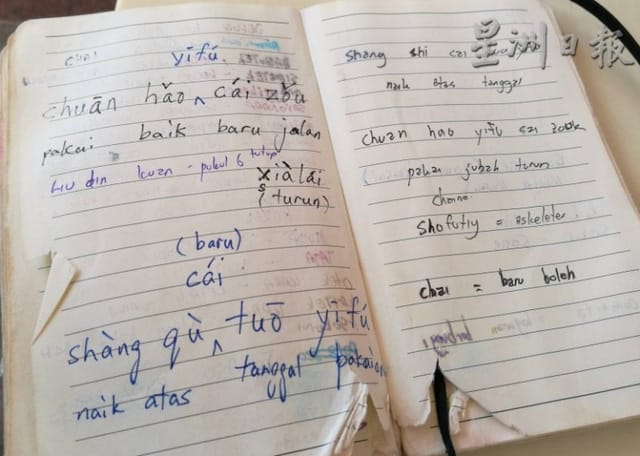 chai
yīfú
chuān hǎo ^ cái zǒu
pakai baik baru jalan
Liu din kuan - pukul 6 tutup
xiàlái
(turun)
(baru)
cái
shàng qù ^ tuō yīfú
naik atas tanggal pakaian
星洲日報
shang shi cai
naik atas tanggal
chuan hao yifu cai zouk
pakai jubah turun
Shofutiy = eskeleter
chai = baru boleh